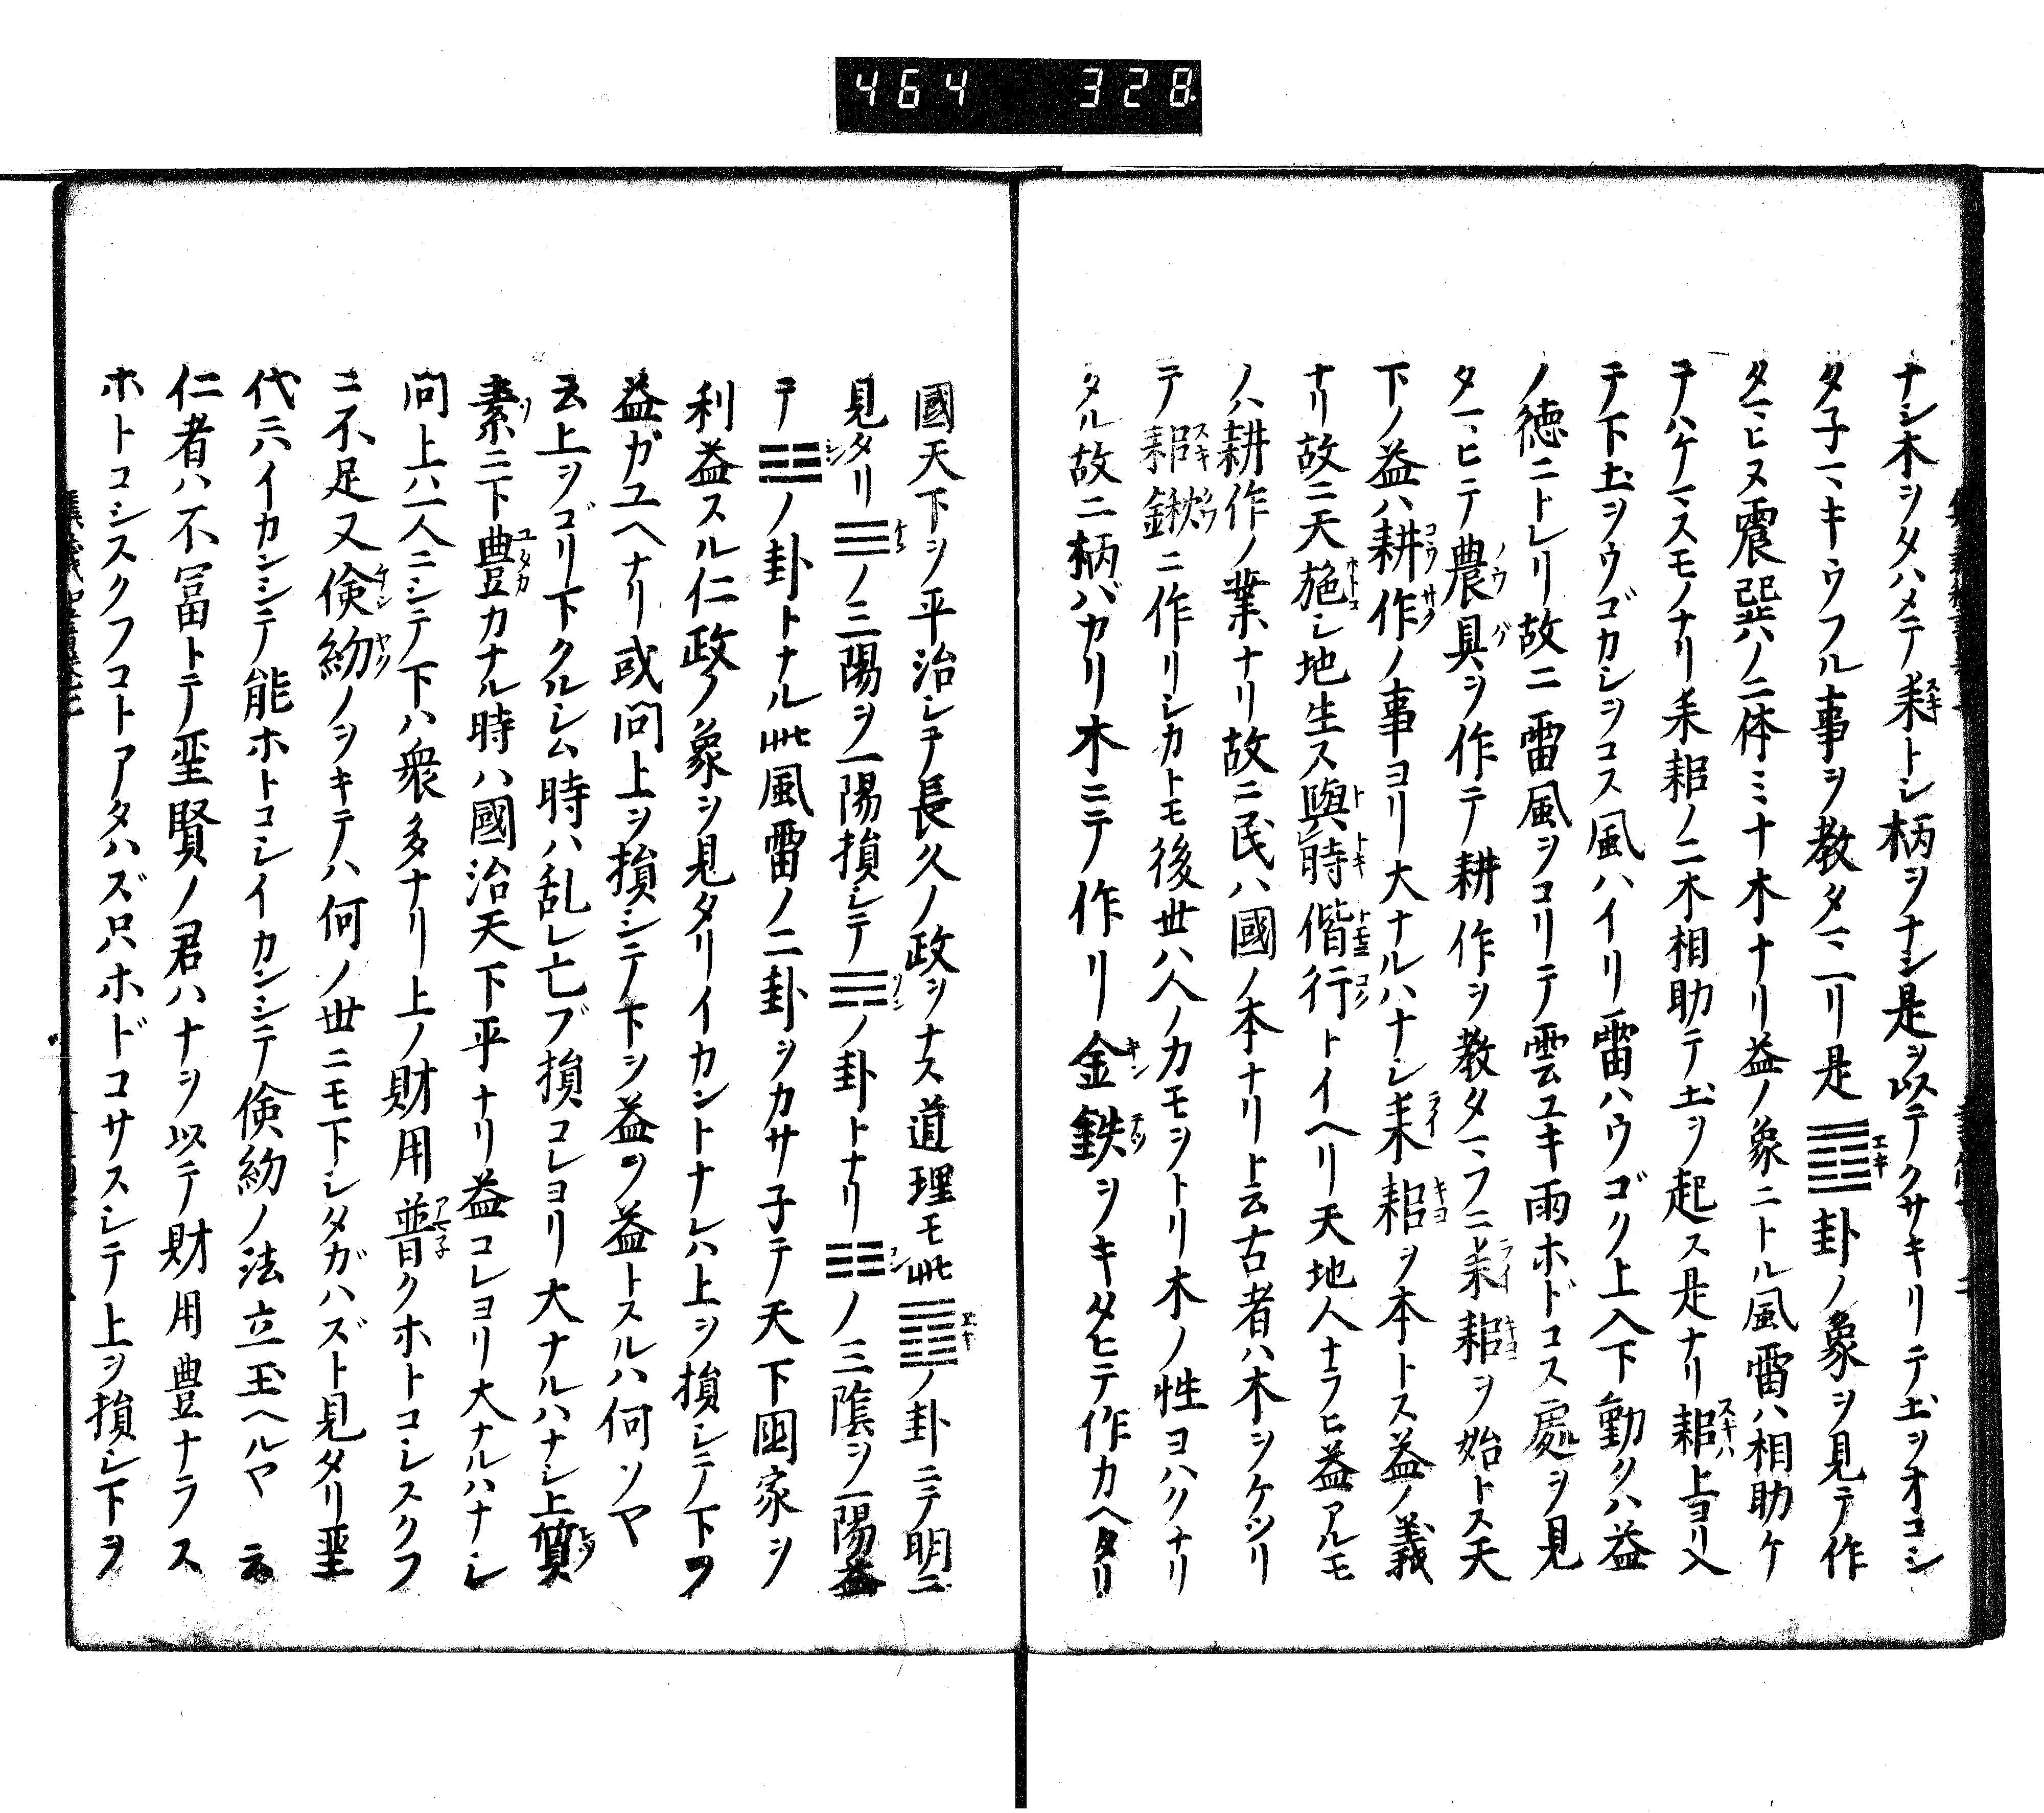 464 328
ナシ木ヲタハメテ耒トシ柄ヲナシ是ヲ以テクサキリテ土ヲオコシ
タ子マキウフル事ヲ教タマヘリ是䷩卦ノ象ヲ見テ作
タマヒヌ震巽ハノ二体ミナ木ナリ益ノ象ニトル風雷ハ相助ケ
テハケマスモノナリ耒耜ノ二木相助テ土ヲ起ス是ナリ耜上ヨリ入
テ下土ヲウゴカシヲコス風ハイリ雷ハウゴク上入下動クハ益
ノ徳ニトレリ故ニ雷風ヲコリテ雲ユキ雨ホドコス處ヲ見
タマヒテ農具ヲ作テ耕作ヲ教タマフニ耒耜ヲ始トス天
下ノ益ハ耕作ノ事ヨリ大ナルハナシ耒耜ヲ本トス益ノ義
ナリ故ニ天施シ地生ス與時偕行トイヘリ天地人ナラヒ益アルモ
ノハ耕作ノ業ナリ故ニ民ハ國ノ本ナリト云古者ハ木ヲケツリ
テ耜鍬ニ作リシカトモ後世ハ人ノカモヲトリ木ノ性ヨハクナリ
タル故ニ柄バカリ木ニテ作リ金鉄ヲキタヒテ作カヘタリ
國天下ヲ平治シテ長久ノ政ヲナス道理モ此䷩ノ卦ニテ明ニ
見タリ☰ノ三陽ヲ一陽損シテ☴ノ卦トナリ☷ノ三陰ヲ一陽益
テ☳ノ卦トナル此風雷ノ二卦ヲカサ子テ天下國家ヲ
利益スル仁政ノ象ヲ見タリイカントナレハ上ヲ損シテ下ヲ
益ガユヘナリ或問上ヲ損シテ下ヲ益ヲ益トスルハ何ソヤ
云上ヲゴリ下クルシム時ハ乱レ亡ブ損コレヨリ大ナルハナシ上質
素ニ下豊カナル時ハ國治天下平ナリ益コレヨリ大ナルハナシ
問上ハ一人ニシテ下ハ衆多ナリ上ノ財用普クホトコシスクフ
ニ不足又倹約ノヲキテハ何ノ世ニモ下シタガハズト見タリ聖
代ニハイカンシテ能ホトコシイカンシテ倹約ノ法立玉ヘルヤ 云
仁者ハ不冨トテ聖賢ノ君ハナヲ以テ財用豊ナラス
ホトコシスクフコトアタハズ只ホドコサスシテ上ヲ損シ下ヲ